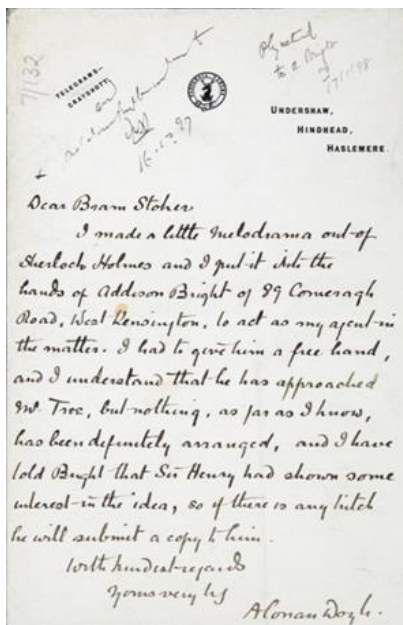 7/132
TELEGRAMS-
GRAYSHOTT.
16.12.97
to A Bright
17/1/98
UNDERSHAW,
HINDHEAD,
HASLEMERE.
Dear Bram Stoker
I made a little Melodrama out of
Sherlock Holmes and I put it into the
hands of Addison Bright of 89 Comeragh
Road, West Kensington, to act as my agent in
the matter. I had to give him a free hand,
and I understand that he has approached
Mr Tree, but nothing, as far as I know,
has been definitely arranged, and I have
told Bright that Sir Henry had shown some
interest in the idea, so if there is any hitch
he will submit a copy to him.
With kindest regards
Yours very truly
A Conan Doyle.